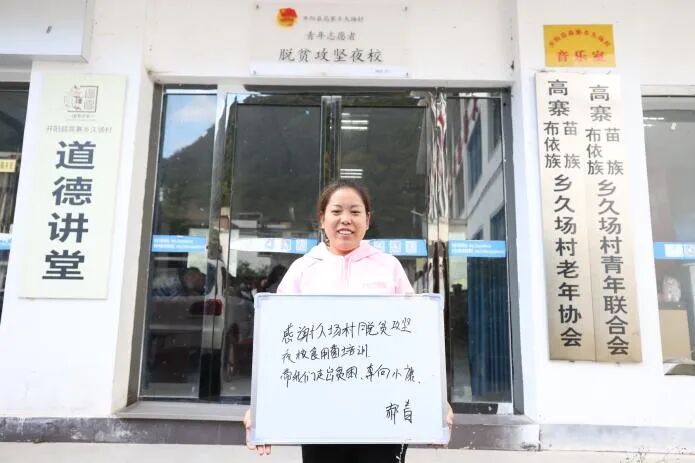 开阳县高寨乡久场村
青年志愿者
脱贫攻坚夜校
开阳县高寨乡久场村
道德讲堂
音乐室
高寨苗族布依族乡久场村老年协会
高寨苗族布依族乡久场村青年联合会
感谢久场村脱贫攻坚
夜校食用菌培训
带我们走出贫困、奔向小康.